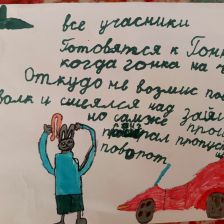 все учасники
Готовятся к Гон
когда гонка на
Откудо не возмис по
волк и смеялся над
но самже зай
прои
пропус
поворот